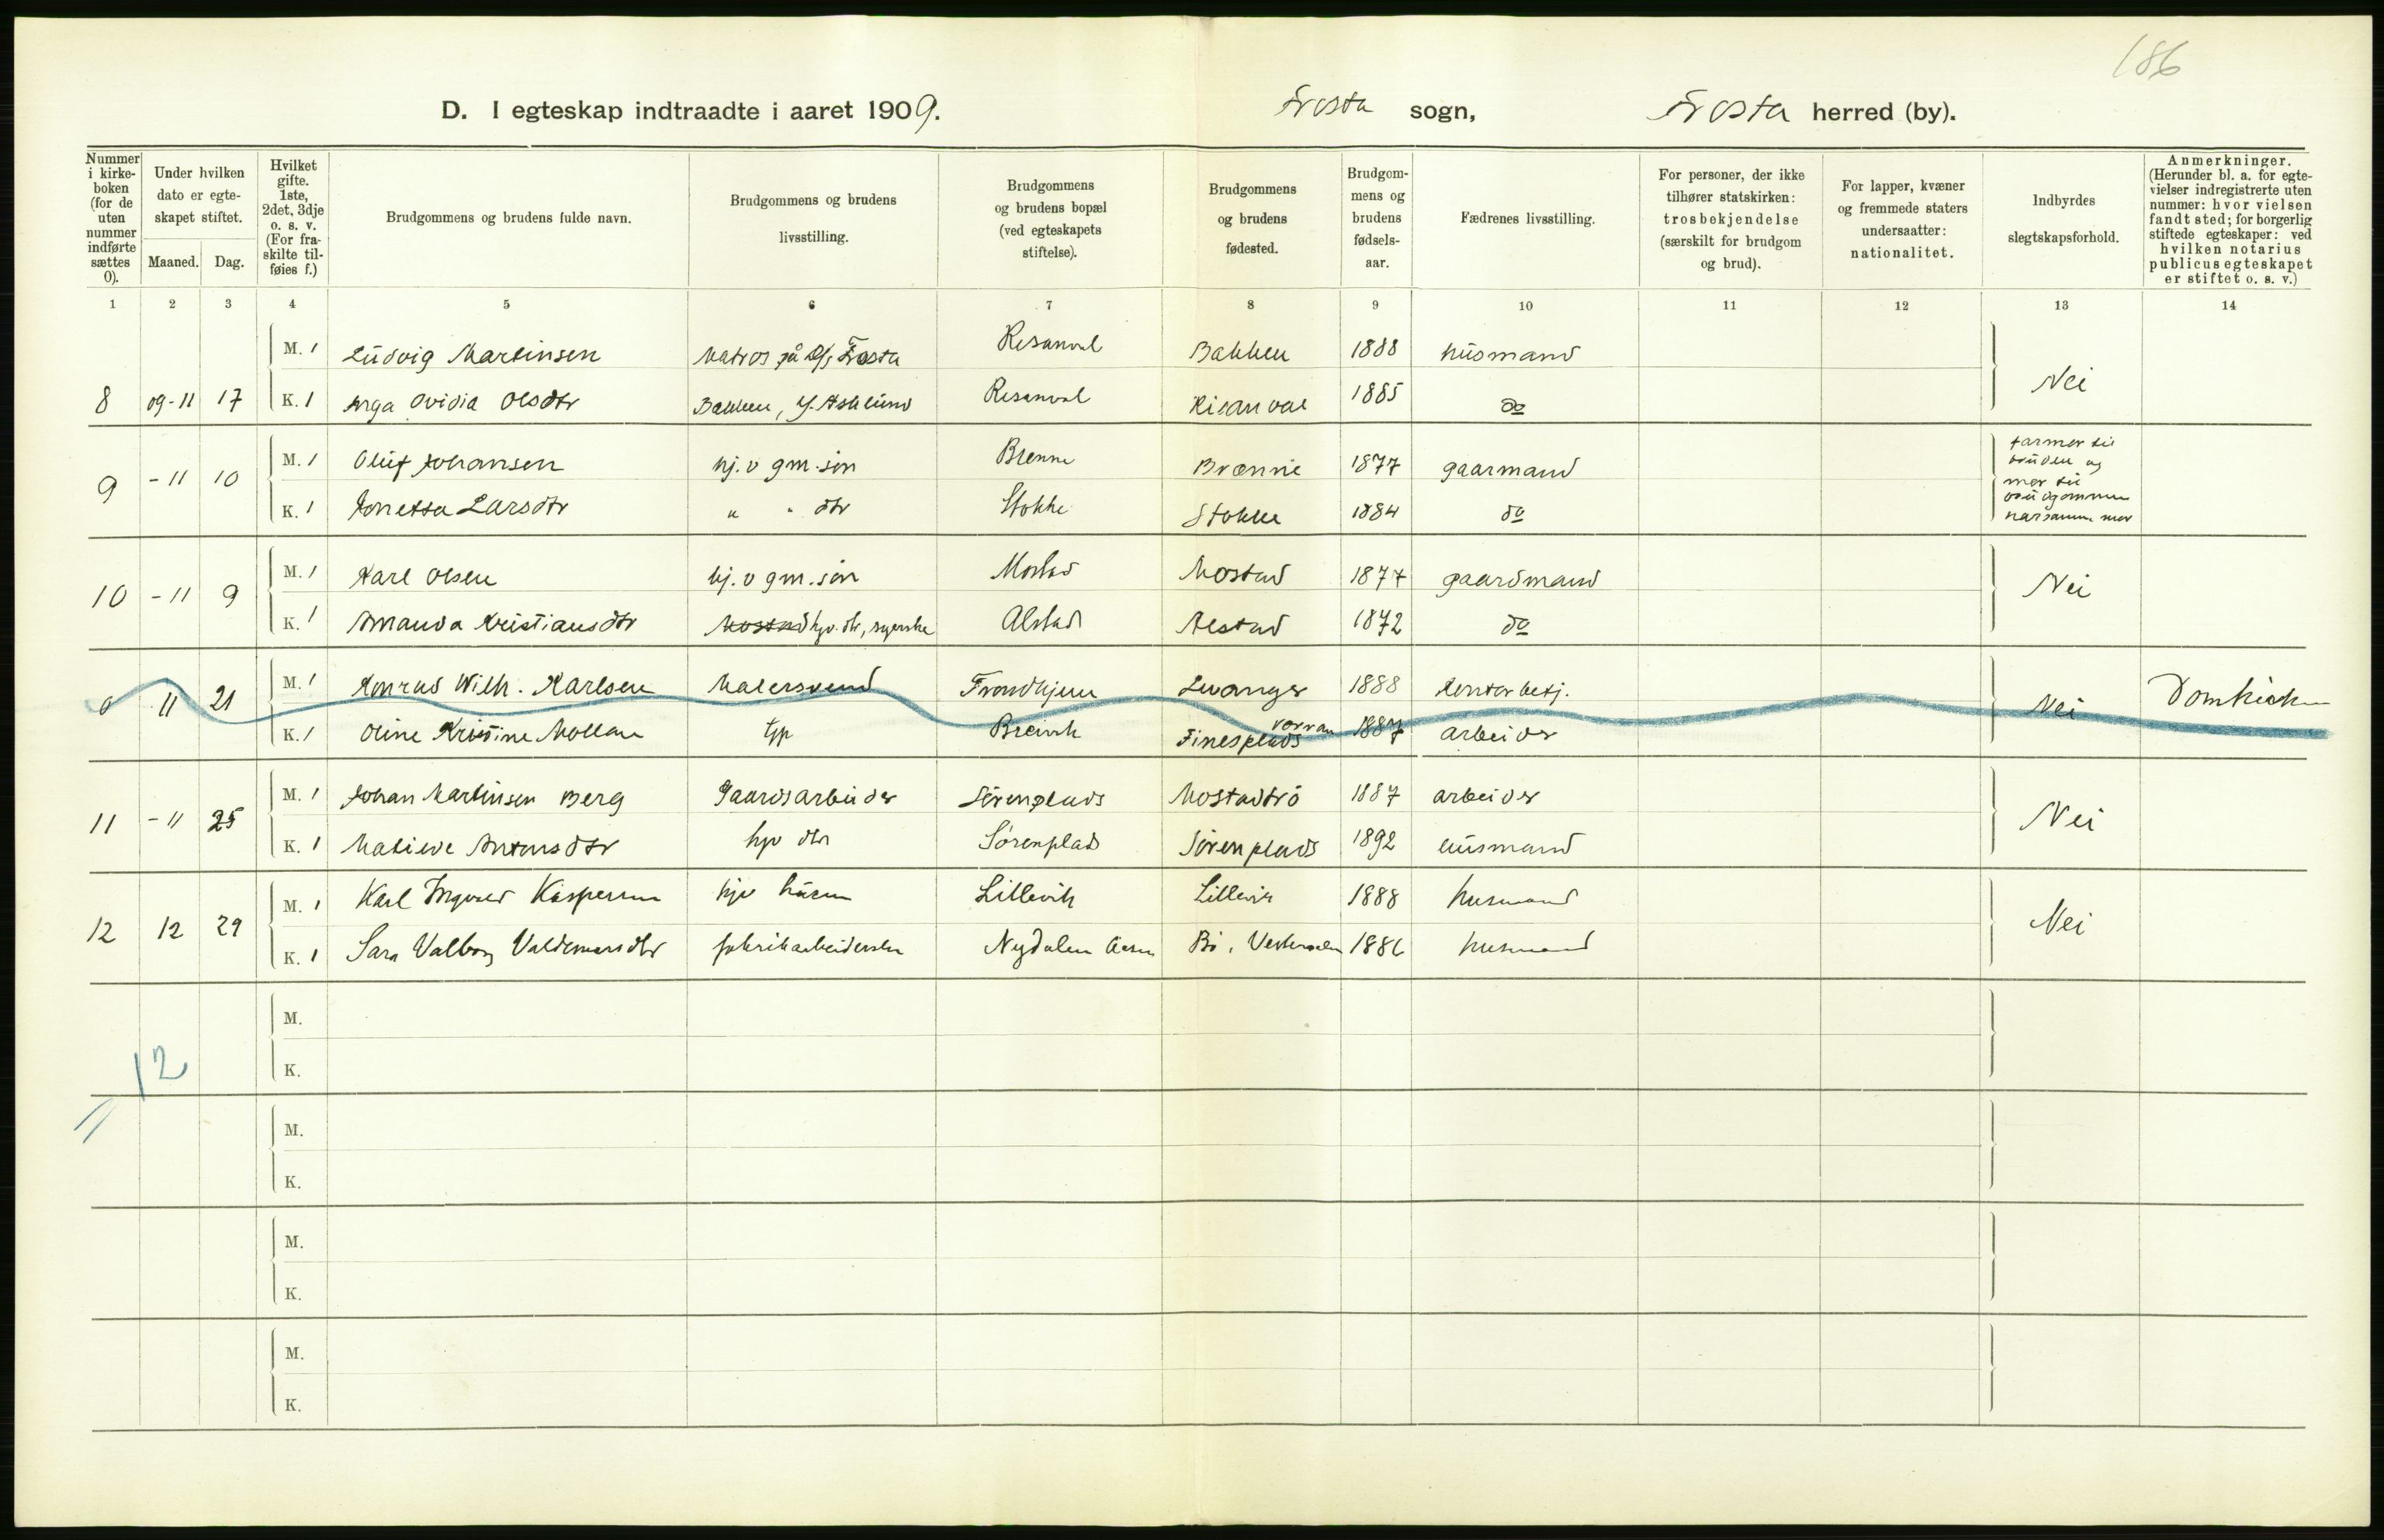 186
D. I egteskap indtraadte i aaret 1909. Frosta sogn, Frosta herred (by).
Nummer i kirkeboken (for de uten nummer indførte sættes 0).
Under hvilken dato er egteskapet stiftet.
Maaned. Dag.
Hvilket gifte. 1ste, 2det, 3dje o. s. v. (For fraskilte tilføies f.)
Brudgommens og brudens fulde navn.
Brudgommens og brudens livsstilling.
Brudgommens og brudens bopæl (ved egteskapets stiftelse).
Brudgommens og brudens fødested.
Brudgommens og brudens fødselsaar.
Fædrenes livsstilling.
For personer, der ikke tilhører statskirken: trosbekjendelse (særskilt for brudgom og brud).
For lapper, kvæner og fremmede staters undersaatter: nationalitet.
Indbyrdes slegtskapsforhold.
Anmerkninger. (Herunder bl. a. for egtevielser indregistrerte uten nummer: hvor vielsen fandt sted; for borgerlig stiftede egteskaper: ved hvilken notarius publicus egteskapet er stiftet o. s. v.)
1 2 3 4 5 6 7 8 9 10 11 12 13 14
M. 1 Ludvig Martinsen Matros på D/S Frosta Risanvol Bakken 1888 husmand
8 09-11 17 K. 1 Ovidia Olsdtr Bakken, Risanvol Risanvol 1885 do Nei
M. 1 Oluf Johansen hj. v gm. søn Brenne Brænne 1877 gaarmand
9 - 11 10 K. 1 Jonetta Larsdtr " " dtr Stokke Stokke 1884 do
farmor til
bruden og
mor til
brudgommen
M. 1 Karl Olsen hj. v gm. søn Mostad Mostad 1877 gaardmand
10 - 11 9 K. 1 Amanda Kristiansdtr Mostad hjv. dtr, syerske Alstad Alstad 1872 do Nei
M. 1 Konrad Wilh. Karlsen Malersvend Trondhjem Levanger 1888 Kontorbetj.
0 11 21 K. 1 Oline Kristine Mollan tjp Breivik Finesplads 1887 arbeider Nei Domkirken
M. 1 Johan Martinsen Berg Gaardsarbeider Sörenplads Mostadtrö 1887 arbeider
11 - 11 25 K. 1 Antonsdtr hjv dtr Sörenplads Sörenplads 1892 husmand Nei
M. 1 Karl Ingvald Kaspersen hjv Lillevik Lillevik 1888 husmand
12 12 29 K. 1 Sara Valborg Valdemarsdtr fabrikarbeiderske Nydalen Aasen Bö, Vesteraalen 1886 husmand Nei
M.
K.
12
M.
K.
M.
K.
M.
K.